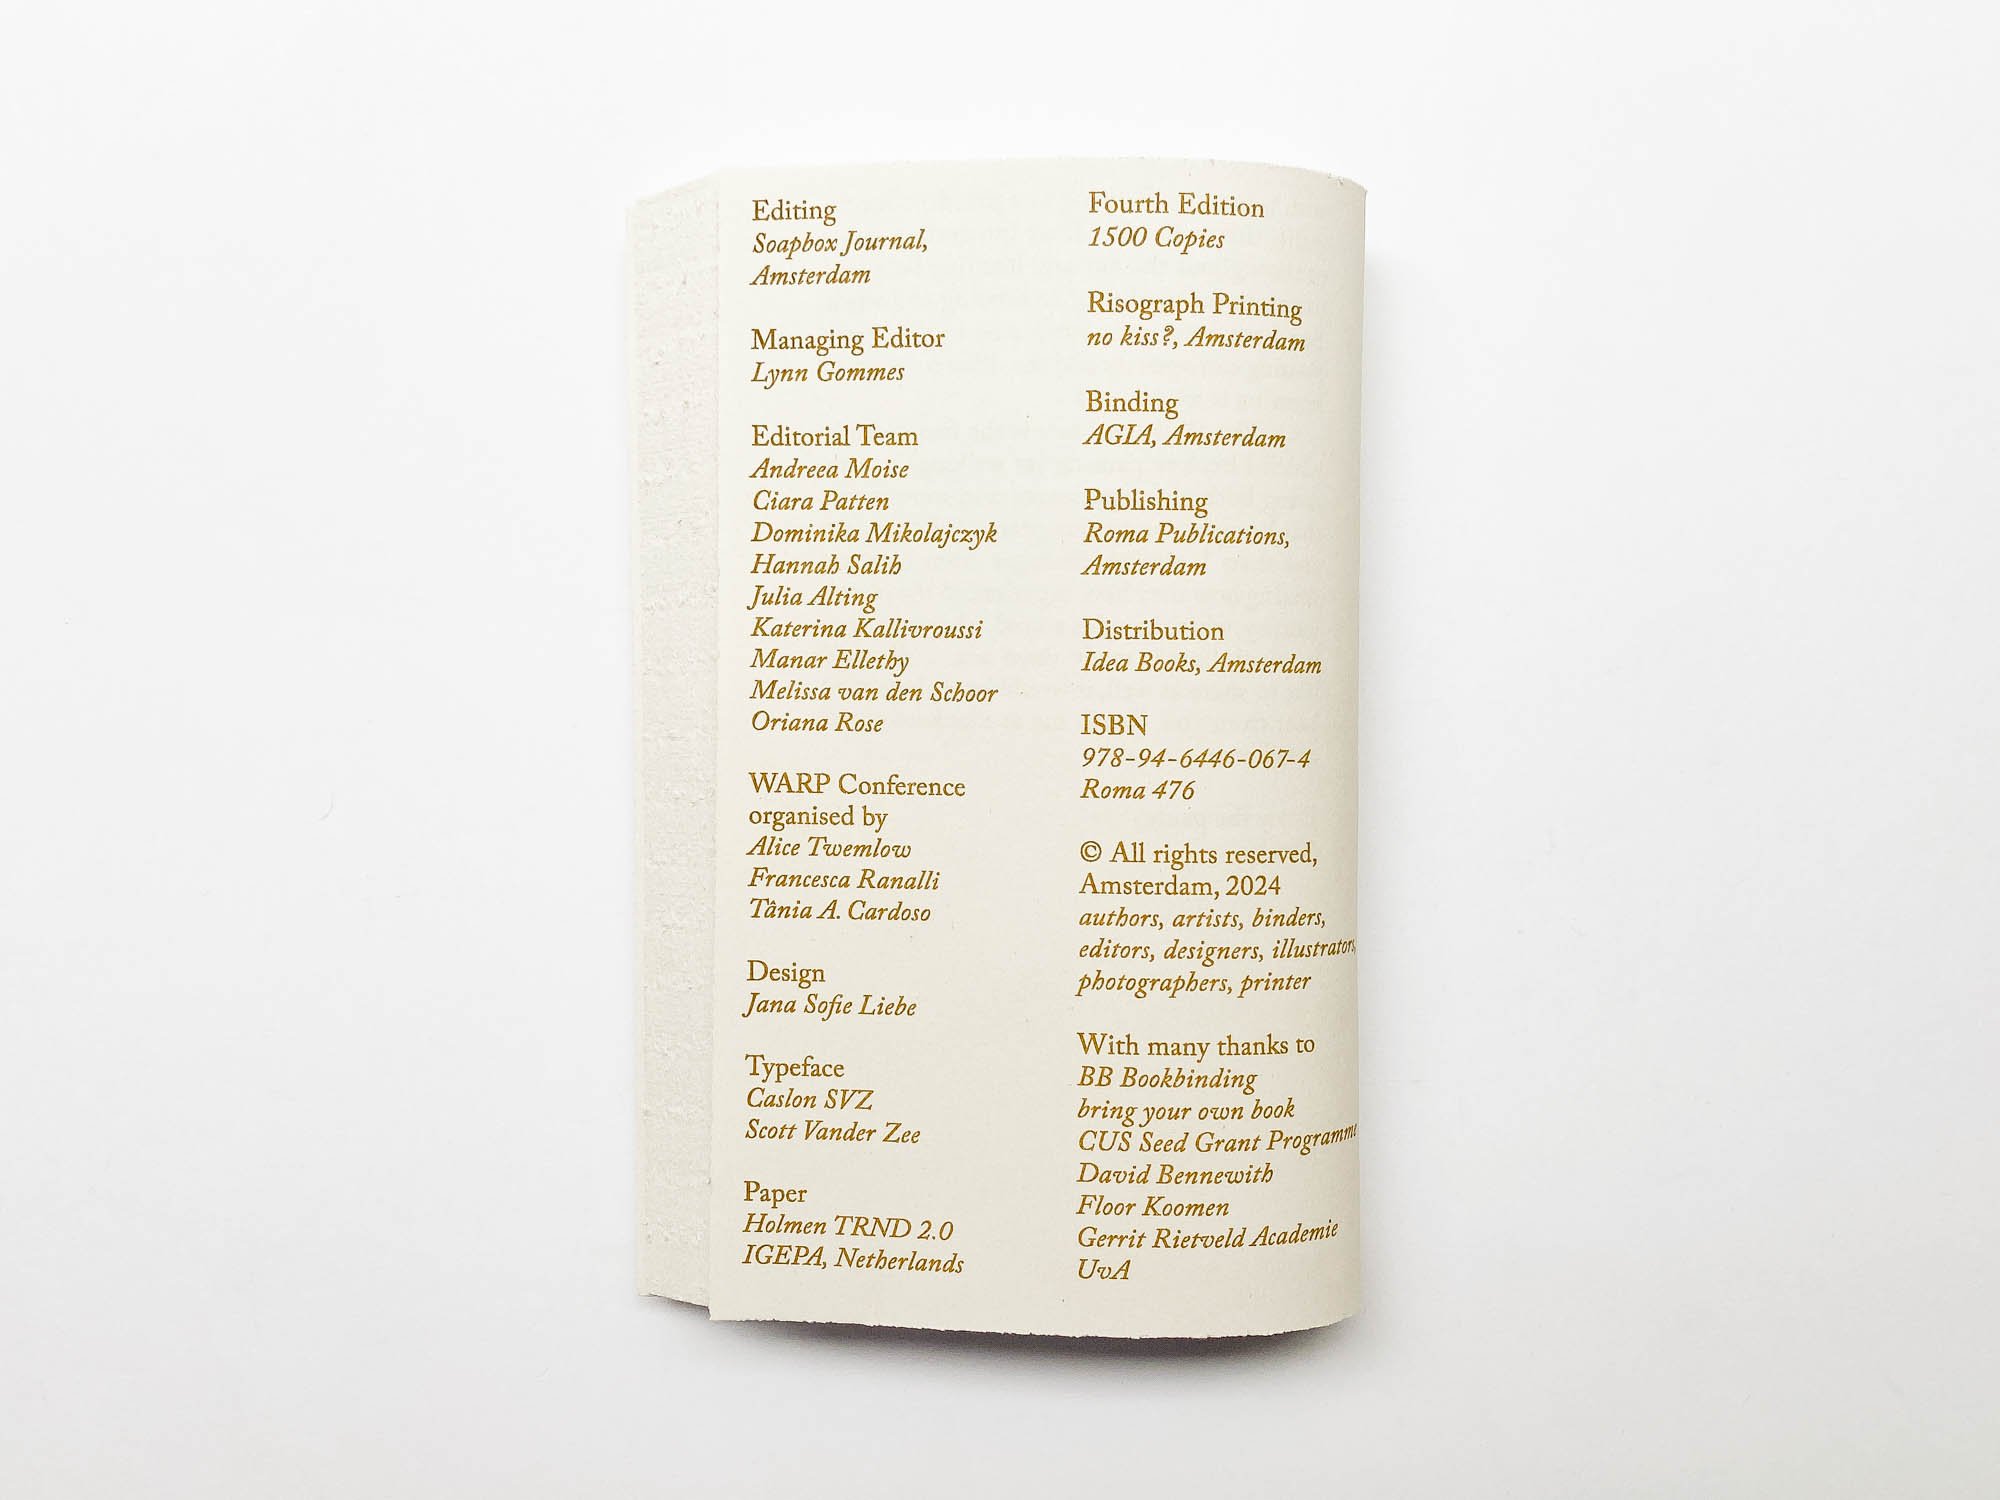 Editing
Soapbox Journal,
Amsterdam
Managing Editor
Lynn Gommes
Editorial Team
Andreea Moise
Ciara Patten
Dominika Mikolajczyk
Hannah Salih
Julia Alting
Katerina Kallivroussi
Manar Ellethy
Melissa van den Schoor
Oriana Rose
WARP Conference
organised by
Alice Twemlow
Francesca Ranalli
Tânia A. Cardoso
Design
Jana Sofie Liebe
Typeface
Caslon SVZ
Scott Vander Zee
Paper
Holmen TRND 2.0
IGEPA, Netherlands
Fourth Edition
1500 Copies
Risograph Printing
no kiss?, Amsterdam
Binding
AGIA, Amsterdam
Publishing
Roma Publications,
Amsterdam
Distribution
Idea Books, Amsterdam
ISBN
978-94-6446-067-4
Roma 476
© All rights reserved,
Amsterdam, 2024
authors, artists, binders,
editors, designers, illustrators,
photographers, printer
With many thanks to
BB Bookbinding
bring your own book
CUS Seed Grant Programme
David Bennewith
Floor Koomen
Gerrit Rietveld Academie
UvA